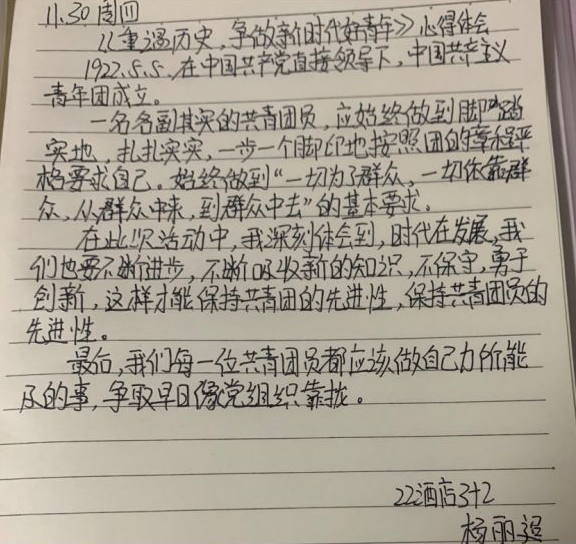 11.30 周四
《重温历史,争做新时代好青年》心得体会
1922.5.5.在中国共产党直接领导下,中国共产主义
青年团成立。
一名名副其实的共青团员,应始终做到脚踏
实地,扎扎实实,一步一个脚印地按照团的章程严
格要求自己。始终做到“一切为了群众,一切依靠群
众,从群众中来,到群众中去”的基本要求。
在此次活动中,我深刻体会到,时代在发展,我
们也要不断进步,不断吸收新的知识,不保守,勇于
创新,这样才能保持共青团的先进性,保持共青团员的
先进性。
最后,我们每一位共青团员都应该做自己力所能
及的事,争取早日像党组织靠拢。
22酒店3+2
杨丽